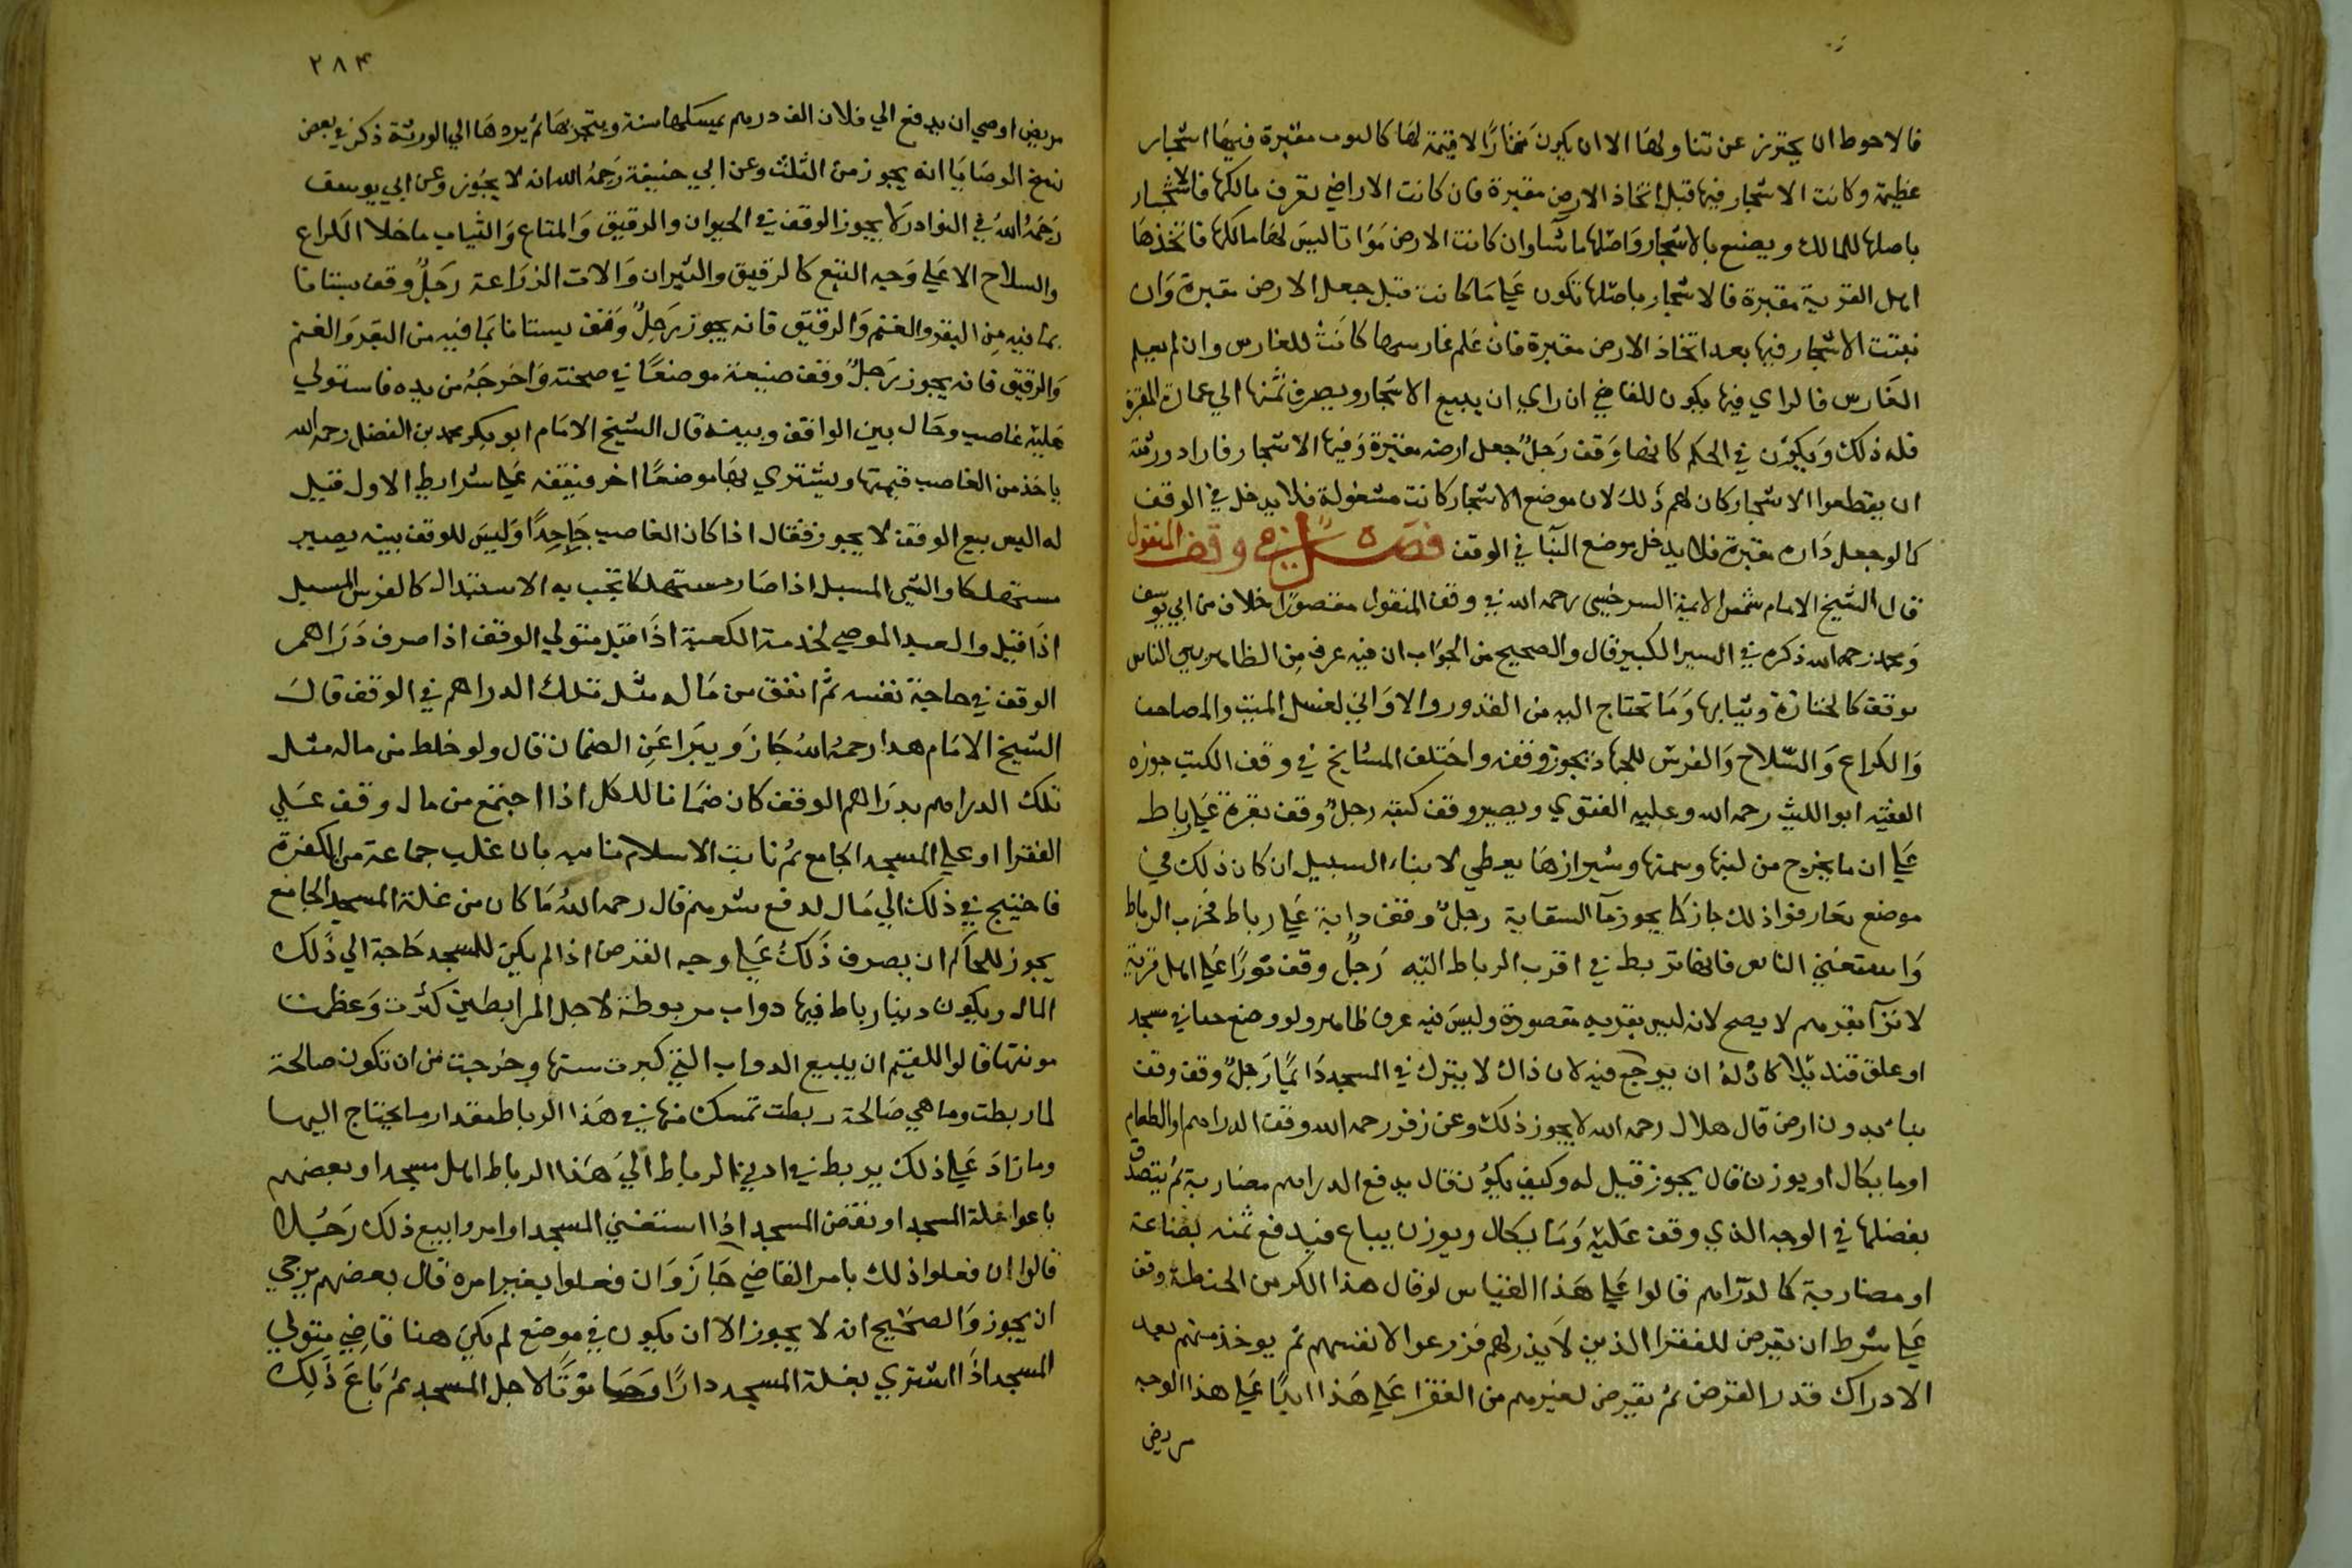 فالاحوط ان يحترز عن تناولها الا ان يكون لا قيمة لها مقبرة فيها اشجار
عظيمة وكانت الاشجار فيها قبل اتخاذ الارض مقبرة فان كانت الاراضي تعرف مالكها فالاشجار
باصلها للمالك ويصنع بالاشجار واصلها ما شا وان كانت الارض مواتا ليس لها مالك فاتخذها
اهل القرية مقبرة فالاشجار باصلها تكون علي ما كانت قبل جعل الارض مقبرة وان
نبتت الاشجار فيها بعد اتخاذ الارض مقبرة فان علم غارسها كانت للغارس وان لم يعلم
الغارس فالراي فيها يكون للقاضي ان راي ان يبيع الاشجار ويصرف ثمنها الي عمارة المقبرة
فله ذلك ويكون في الحكم كانها وقف رجل جعل ارضه مقبرة وفيها الاشجار فاراد ورثته
ان يقطعوا الاشجار كان لهم ذلك لان موضع الاشجار كانت مشغولة فلا يدخل في الوقف
كما لو جعل داره مقبرة فلا يدخل موضع البنا في الوقف فصل في وقف المنقول
قال الشيخ الامام شمس الايمة السرخسي رحمه الله في وقف المنقول مقصورا خلاف من ابي يوسف
ومحمد رحمه الله ذكره في السير الكبير قال والصحيح من الجواب ان فيه عرف من الظاهر بين الناس
بوقفه كالجنازة وثيابها وما تحتاج اليه من القدور والاواني لغسل الميت والمصاحف
والكراع والسلاح والفرس للجهاد يجوز وقفه واختلف المشايخ في وقف الكتب جوزه
الفقيه ابو الليث رحمه الله وعليه الفتوي ويصير وقف كتبه رجل وقف بقرة علي رباط
علي ان ما يخرج من لبنها وسمنها وشيرازها يعطي لابناء السبيل ان كان ذلك في
موضع تعارفوا ذلك جاز كما يجوز مآ السقاية رجل وقف دابة علي رباط فخرب الرباط
واستغني الناس فانها تربط في اقرب الرباط اليه رجل وقف ثورا علي اهل قرية
بقرهم لا يصح لانه ليس مقصودة وليس فيه عرف ظاهر ولو وضع في مسجد
او علق قنديلا كان له ان يرجع فيه لان ذاك لا يترك في المسجد دايما رجل وقف وقف
بنا بدون ارض قال هلال رحمه الله لا يجوز ذلك وعن زفر رحمه الله وقف الدراهم او الطعام
او ما يكال او يوزن قال يجوز قيل له وكيف يكون قال يدفع الدراهم مضاربة ثم يتصدق
بفضلها في الوجه الذي وقف عليه وما يكال ويوزن يباع فيدفع ثمنه بضاعة
او مضاربة كالدراهم قالوا علي هذا القياس لو قال هذا الكر من الحنطة وقف
علي شرط ان يقرض للفقرا الذين لا بذر لهم فزرعوا لانفسهم ثم يوخذ منهم بعد
الادراك قدر القرض ثم يقرض لغيرهم من الفقرا علي هذا ابدا علي هذا الوجه
مريض
٢٨٤
مريض اوصي ان يدفع الي فلان الف درهم يمسكها سنة ويتجر بها ثم يردها الي الورثة ذكر في بعض
نسخ الوصايا انه يجوز من الثلث وعن ابي حنيفة رحمه الله انه لا يجوز وعن ابي يوسف
رحمه الله في النوادر لا يجوز الوقف في الحيوان والرقيق والمتاع والثياب ما خلا الكراع
والسلاح الا علي وجه التبع كالرقيق والثيران والات الزراعة رجل وقف بستانا
بما فيه من البقر والغنم والرقيق فانه يجوز رجل وقف بستانا بما فيه من البقر والغنم
والرقيق فانه يجوز رجل وقف ضيعة موضعا في صحته واخرجه من يده فاستولي
عليه غاصب وحال بين الواقف وبينه قال الشيخ الامام ابو بكر محمد بن الفضل رحمه الله
ياخذ من الغاصب قيمتها ويشتري بها موضعا اخر فيقفه علي شرايط الاول قيل
له اليس بيع الوقف لا يجوز فقال اذا كان الغاصب جاحدا وليس للوقف بينه يصير
مستهلكا والشي المسبل اذا صار مستهلكا يجب به الاستبدال كالفرس المسبل
اذا قتل والعبد الموصي لخدمة الكعبة اذا قتل متولي الوقف اذا صرف دراهم
الوقف في حاجة نفسه ثم انفق من ماله مثل تلك الدراهم في الوقف قال
الشيخ الامام هدا رحمه الله جاز ويبرا عن الضمان قال ولو خلط من ماله مثل
تلك الدراهم بدراهم الوقف كان ضمانا للكل اذا اجتمع من مال وقف علي
الفقرا او علي المسجد الجامع ثم نابت الاسلام بان غلب جماعة من الكفرة
فاحتيج في ذلك الي مال لدفع شرهم قال رحمه الله ما كان من غلة المسجد الجامع
يجوز للحاكم ان يصرف ذلك علي وجه القرض اذا لم يكن للمسجد حاجة الي ذلك
المال ويكون دينا رباط فيها دواب مربوطة لاجل المرابطين كثرت وعظمت
مونتها قالوا للقيم ان يبيع الدواب التي كبرت سنها وخرجت من ان تكون صالحة
لما ربطت وما هي صالحة ربطت تمسك منها في هذا الرباط مقدار ما يحتاج اليها
وما زاد علي ذلك يربط في ادني الرباط الي هذا الرباط اهل مسجد او بعضهم
باعوا غلة المسجد او نقض المسجد اذا استغني المسجد او امروا ببيع ذلك رجلا
قالوا ان فعلوا ذلك بامر القاضي جاز وان فعلوا بغير امره قال بعضهم يرجي
ان يجوز والصحيح انه لا يجوز الا ان يكون في موضع لم يكن هنا قاضي متولي
المسجد اذا اشتري بغلة المسجد دارا لاجل المسجد ثم باع ذلك